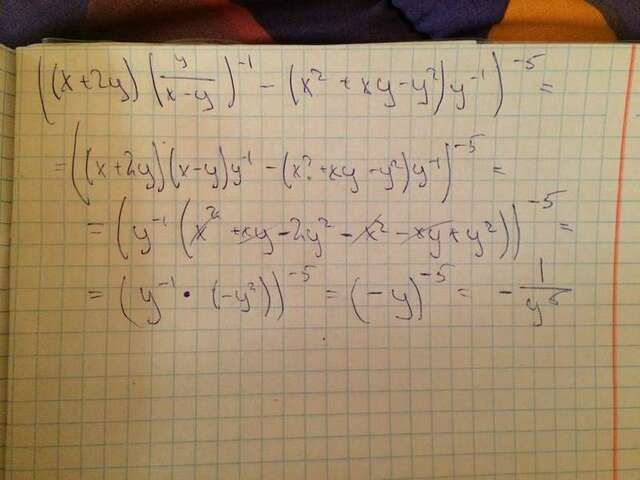 ((x+2y)(y/(x-y))^-1 - (x² + xy - y²)y^-1)^-5 =
= ((x+2y)(x-y)y^-1 - (x² + xy - y²)y^-1)^-5 =
= (y^-1 (x² + xy - 2y² - x² - xy + y²))^-5 =
= (y^-1 · (-y²))^-5 = (-y)^-5 = - 1/y⁵